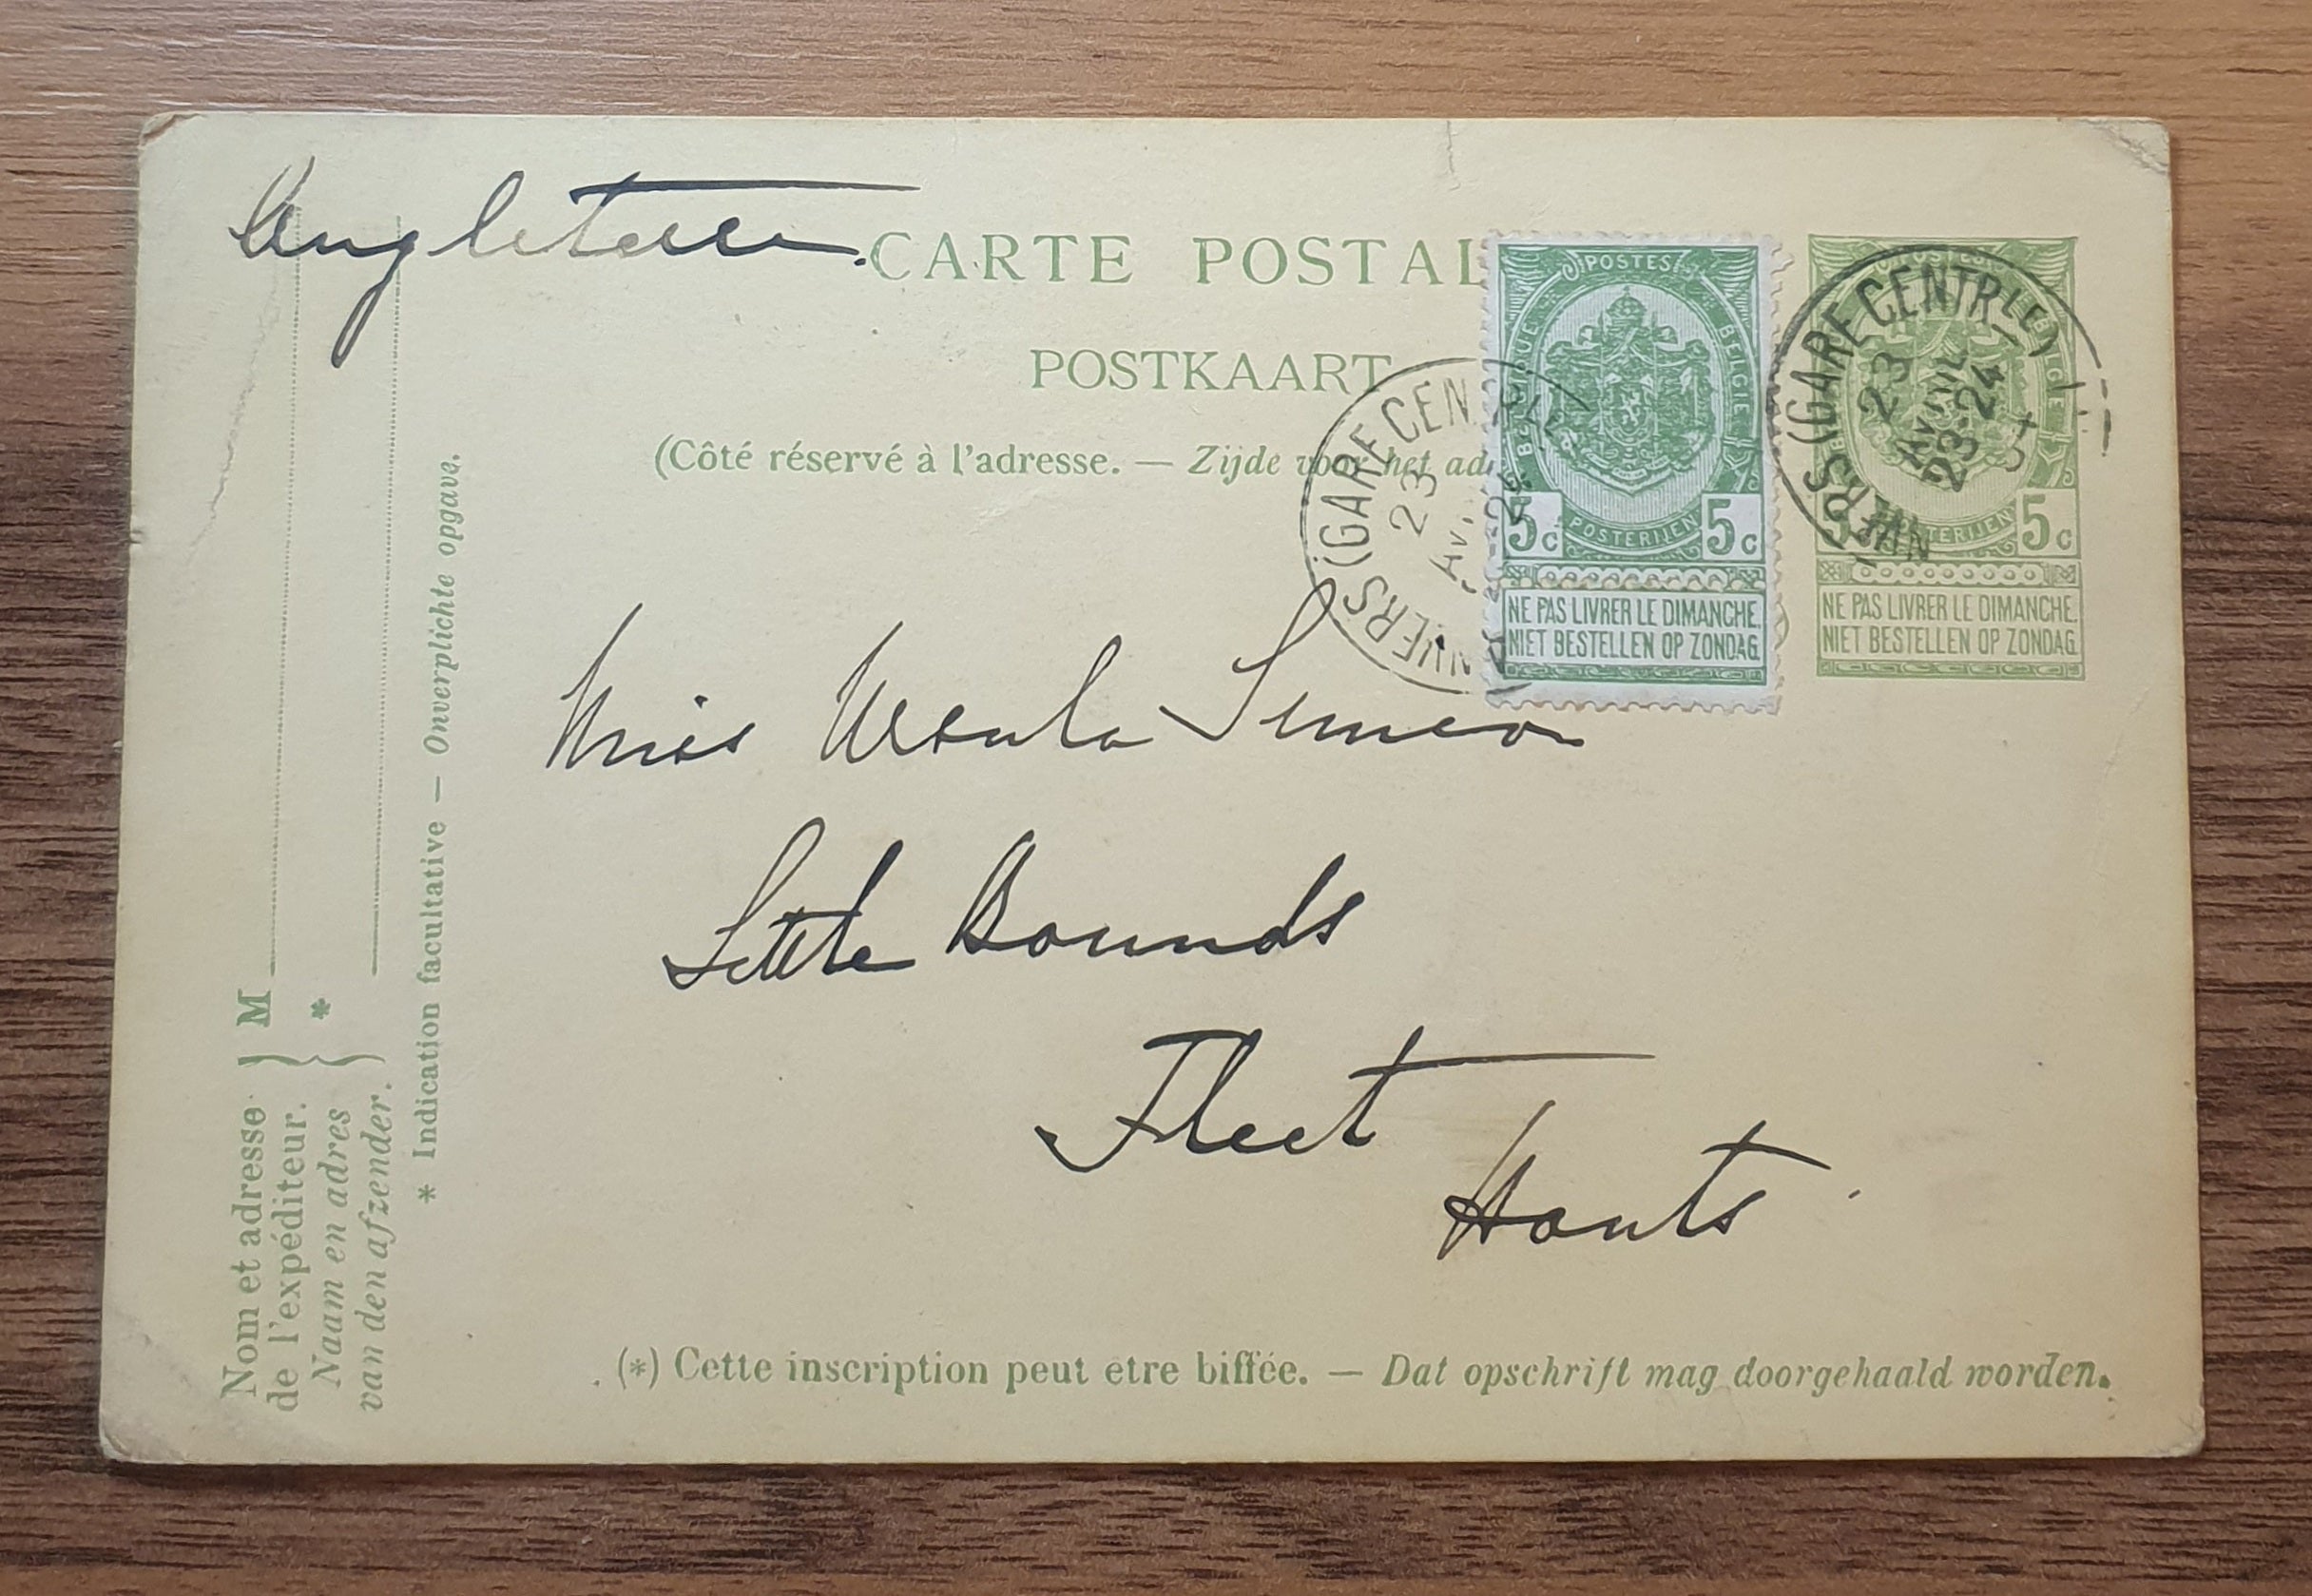 Angleterre.
CARTE POSTAL
POSTKAART
(Côté réservé à l'adresse. — Zijde voor het ad
POSTES
BELGIQUE BELGIE
5c POSTERIJEN 5c
NE PAS LIVRER LE DIMANCHE.
NIET BESTELLEN OP ZONDAG.
ANVERS (GARE CENTRLE)
23
AVRIL
23-24
04
POSTES
BELGIE
POSTERIJEN 5c
NE PAS LIVRER LE DIMANCHE.
NIET BESTELLEN OP ZONDAG.
ANVERS (GARE CEN
23
AV
Miss Ursula Simeon
Little Bounds
Fleet
Hants
Nom et adresse
de l'expéditeur.
Naam en adres
van den afzender.
M
*
* Indication facultative — Onverplichte opgave.
(*) Cette inscription peut etre biffée. — Dat opschrift mag doorgehaald worden.